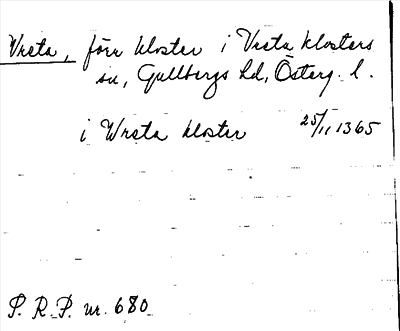 Vreta, förr kloster i Vreta klosters
sn, Gullbergs hd, Österg. l.
i Wreta kloster 25/11 1365
P. R. P. nr. 680